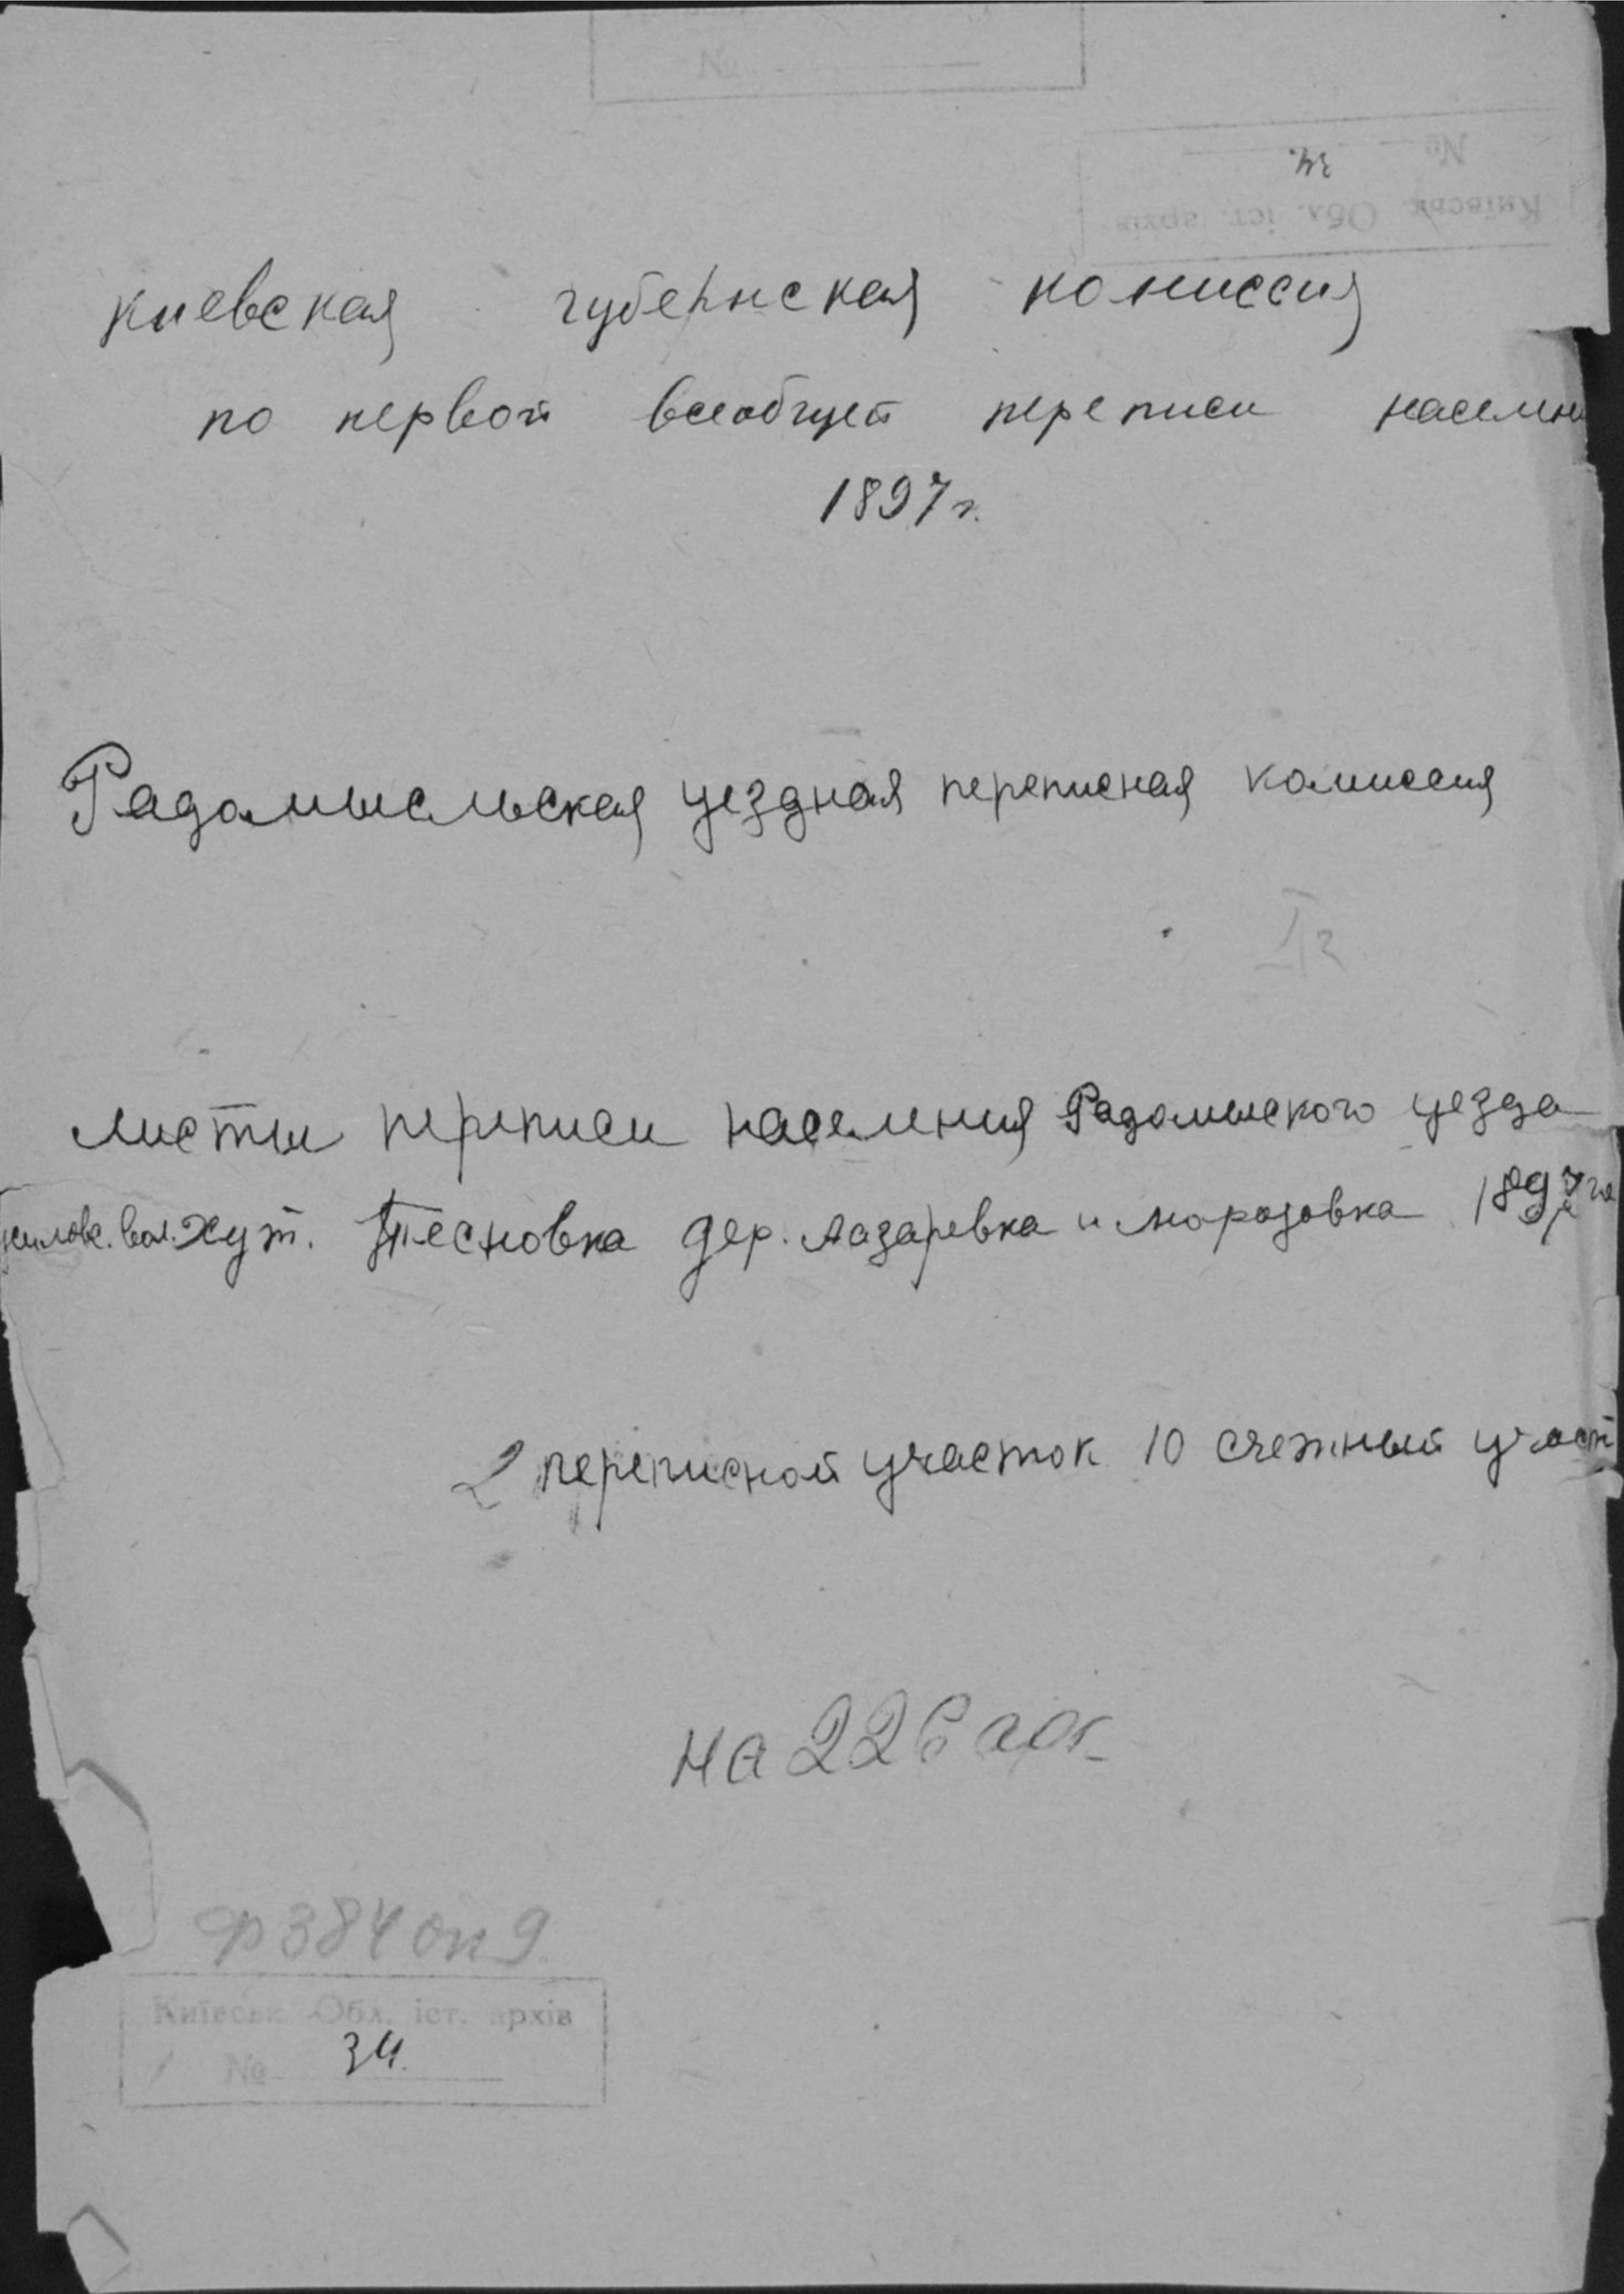 №
№ 34.
Київськ. Обл. іст. архів
киевская губернская комиссия
по первой всеобщей переписи населени
1897 г.
Радомысльская уездная переписная комиссия
листы переписи населения Радомыского уезда
вол. Хут. Тесновка дер. Лазаревка и Морозовка 1897 го
2 переписной участок 10 счетный участ
на 226 арк.
Ф 384 оп 9
Київськ. Обл. іст. архів
№ 34.